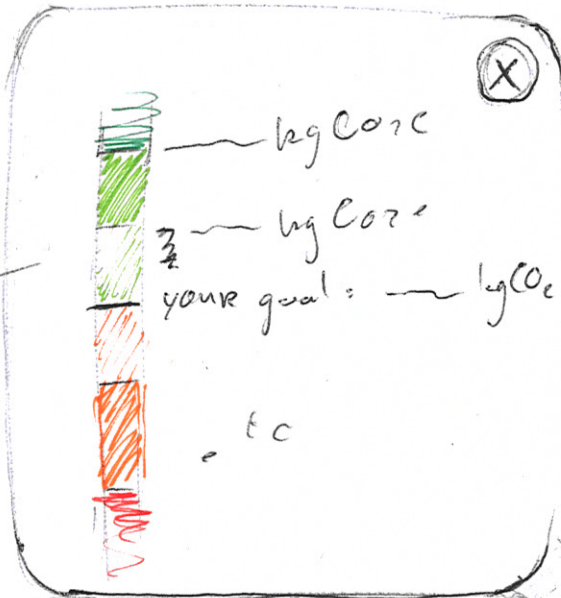 X
kg CO2e
kg CO2e
your goal: kgCO2
etc